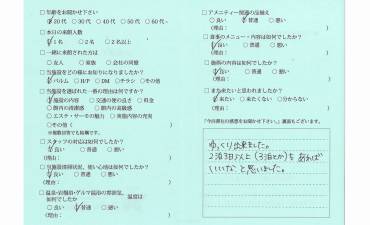 □ 年齢をお聞かせ下さい
□ 20代 □ 30代 □ 40代 □ 50代 □ 60代~
□ 本日の来館人数
□ 1名 □ 2名 □ 2名以上
□ 一緒に来館された方は
□ 友人 □ 家族 □ 会社の同僚
□ 当施設をどの様にお知りになりましたか?
□ パルム □ H/P □ DM □ チラシ □ その他
□ 当施設を選ばれた一番の理由は何ですか?
□ 施設の内容 □ 交通の便の良さ □ 料金
□ 館内の清潔感 □ 館内の高級感
□ エステ・サーモの魅力 □ 宿泊内容の充実
□ その他 ( )
※複数回答でも結構です。
□ スタッフの対応は如何でしたか?
□ 良い □ 普通 □ 悪い
(理由: )
□ 当施設清掃状況、使い心地は如何でしたか?
□ 良い □ 普通 □ 悪い
(理由: )
□ 温泉・岩盤浴・ゲルマ温浴の雰囲気、
温度は
如何でしたか?
□ 良い □ 普通 □ 悪い
(理由: )
□ アメニティー関連の品揃え
□ 良い □ 普通 □ 悪い
(理由: )
□ 食事のメニュー・内容は如何でしたか?
□ 良い □ 普通 □ 悪い
(理由: )
□ 施術の内容は如何でしたか?
□ 良い □ 普通 □ 悪い
(理由: )
□ また来たいと思われましたか?
□ 来たい □ 来たくない □ 分からない
(理由: )
「今日御社の感想をお聞かせ下さい。」裏面もございます。
ゆっくり出来ました。
2泊3日以上(3泊とか)も あれば
いいなと思いました。